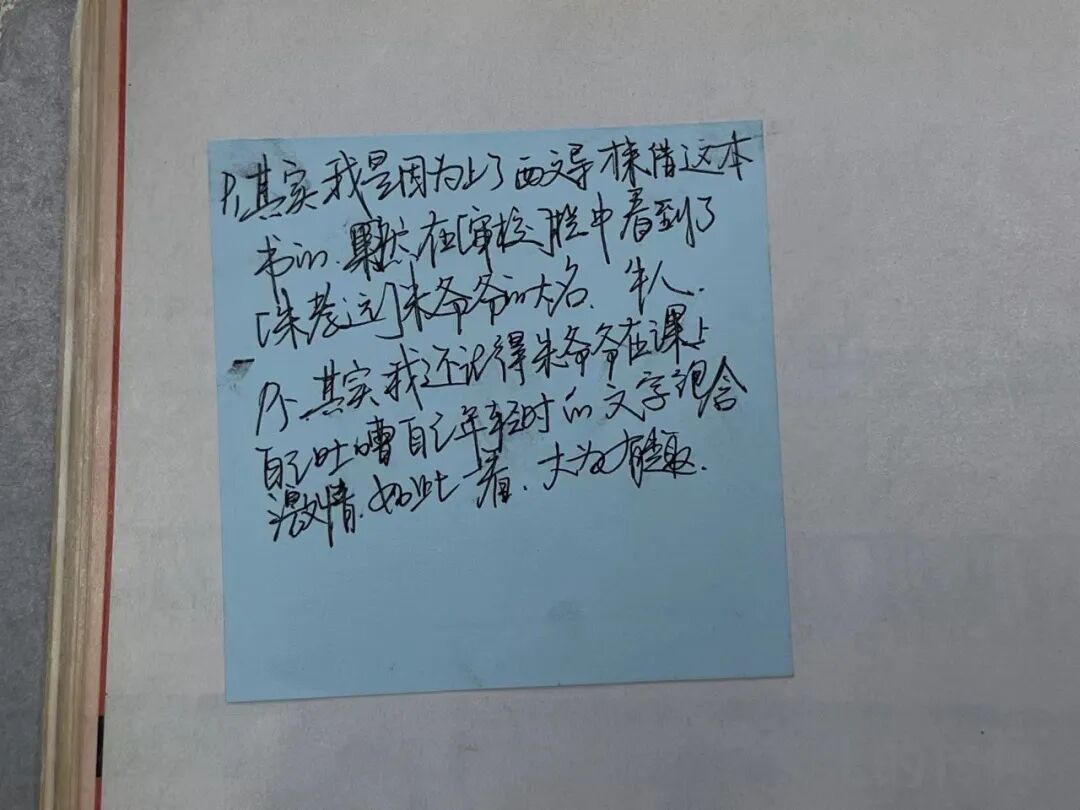 P,其实我是因为上了西文导来借这本
书的.果然在[审校]栏中看到了
[朱孝远]朱爷爷的大名、牛人.
Ps 其实我还记得朱爷爷在课上
自己吐嘈自己年轻时的文字饱含
激情.如此一看、大为有趣.